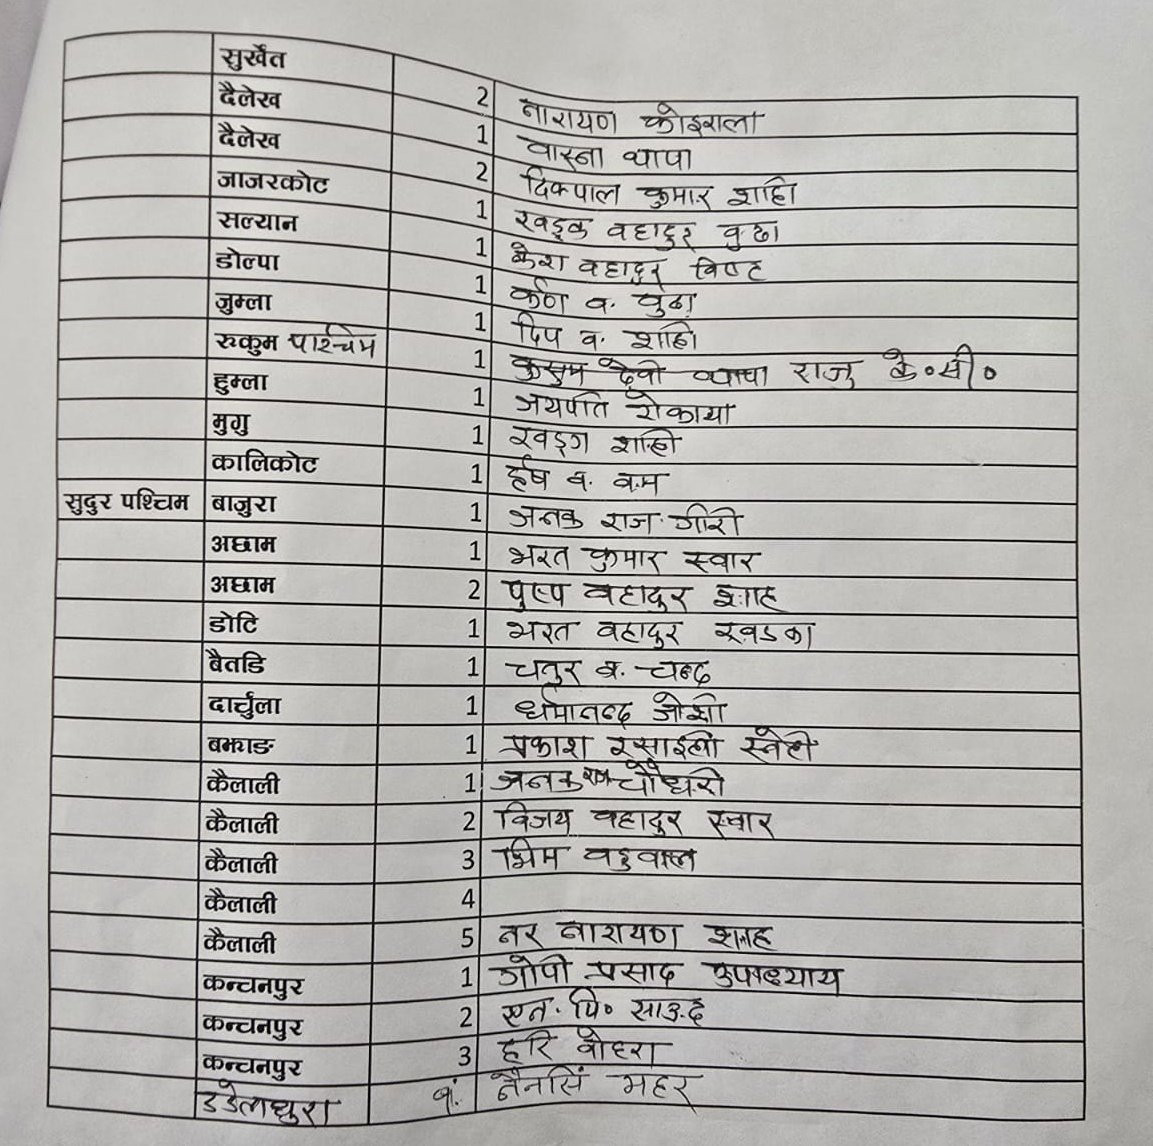 सुर्खेत 2 नारायण कोइराला
दैलेख 1 वास्ना थापा
दैलेख 2 दिक्पाल कुमार शाही
जाजरकोट 1 खड्क वहादुर वुढा
सल्यान 1 केश वहादुर विष्ट
डोल्पा 1 कर्ण व. वुढा
जुम्ला 1 दिप व. शाही
रुकुम पश्चिम 1 कुसुम देवी थापा राजु के०सी०
हुम्ला 1 जयपति रोकाया
मुगु 1 खड्ग शाही
कालिकोट 1 हर्ष व. वम
सुदुर पश्चिम बाजुरा 1 जनक राज गीरी
अछाम 1 भरत कुमार स्वार
अछाम 2 पुष्प वहादुर शाह
डोटि 1 भरत वहादुर खडका
बैतडि 1 चतुर व. चन्द
दार्चुला 1 धर्मानन्द जोशी
बझाङ 1 प्रकाश रसाइली स्नेही
कैलाली 1 जनक चौधरी
कैलाली 2 विजय वहादुर स्वार
कैलाली 3 भिम वडुवाल
कैलाली 4
कैलाली 5 नर नारायण शाह
कन्चनपुर 1 गोपी प्रसाद उपाध्याय
कन्चनपुर 2 एन. पि० साउद
कन्चनपुर 3 हरि वोहरा
डडेलधुरा १. नैनसिं महर